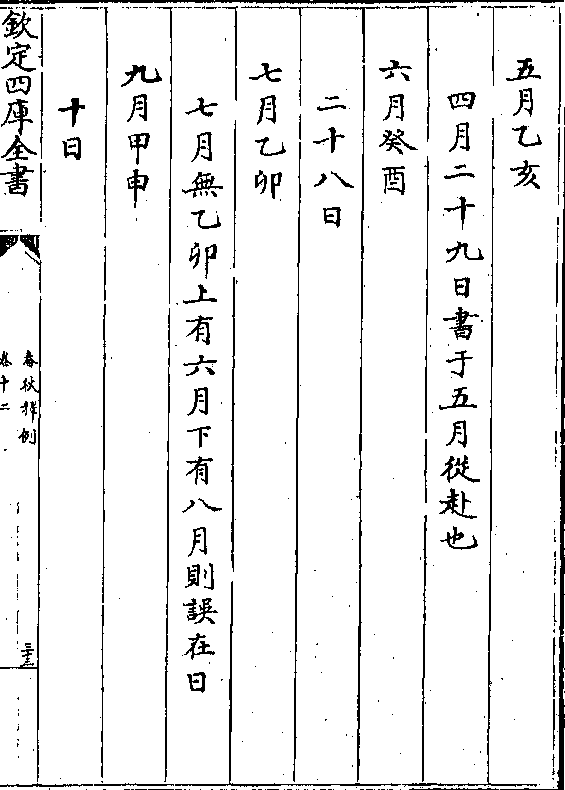 五月乙亥
四月二十九日書于五月從赴也
六月癸酉
二十八日
七月乙卯
七月無乙卯上有六月下有八月則誤在日
九月甲申
十日
欽定四庫全書
春秋釋例
卷十二